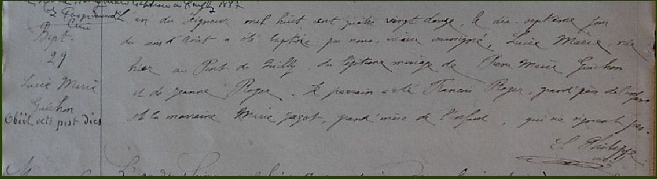 Bapt.
29
Lucie Marie
Guichon
Obiit octo post dies
an du Seigneur mil huit cent quatre vingt douze, le dix septième jour
du mois d'Août a été baptisée par nous vicaire soussigné, Lucie Marie née
hier au Pont de Neuilly, du légitime mariage de Pierre Marie Guichon
et de Jeanne Roger. Le parrain a été François Roger, grand père de l'enfant
et la marraine Marie, grand mère de l'enfant, qui ne signent pas.